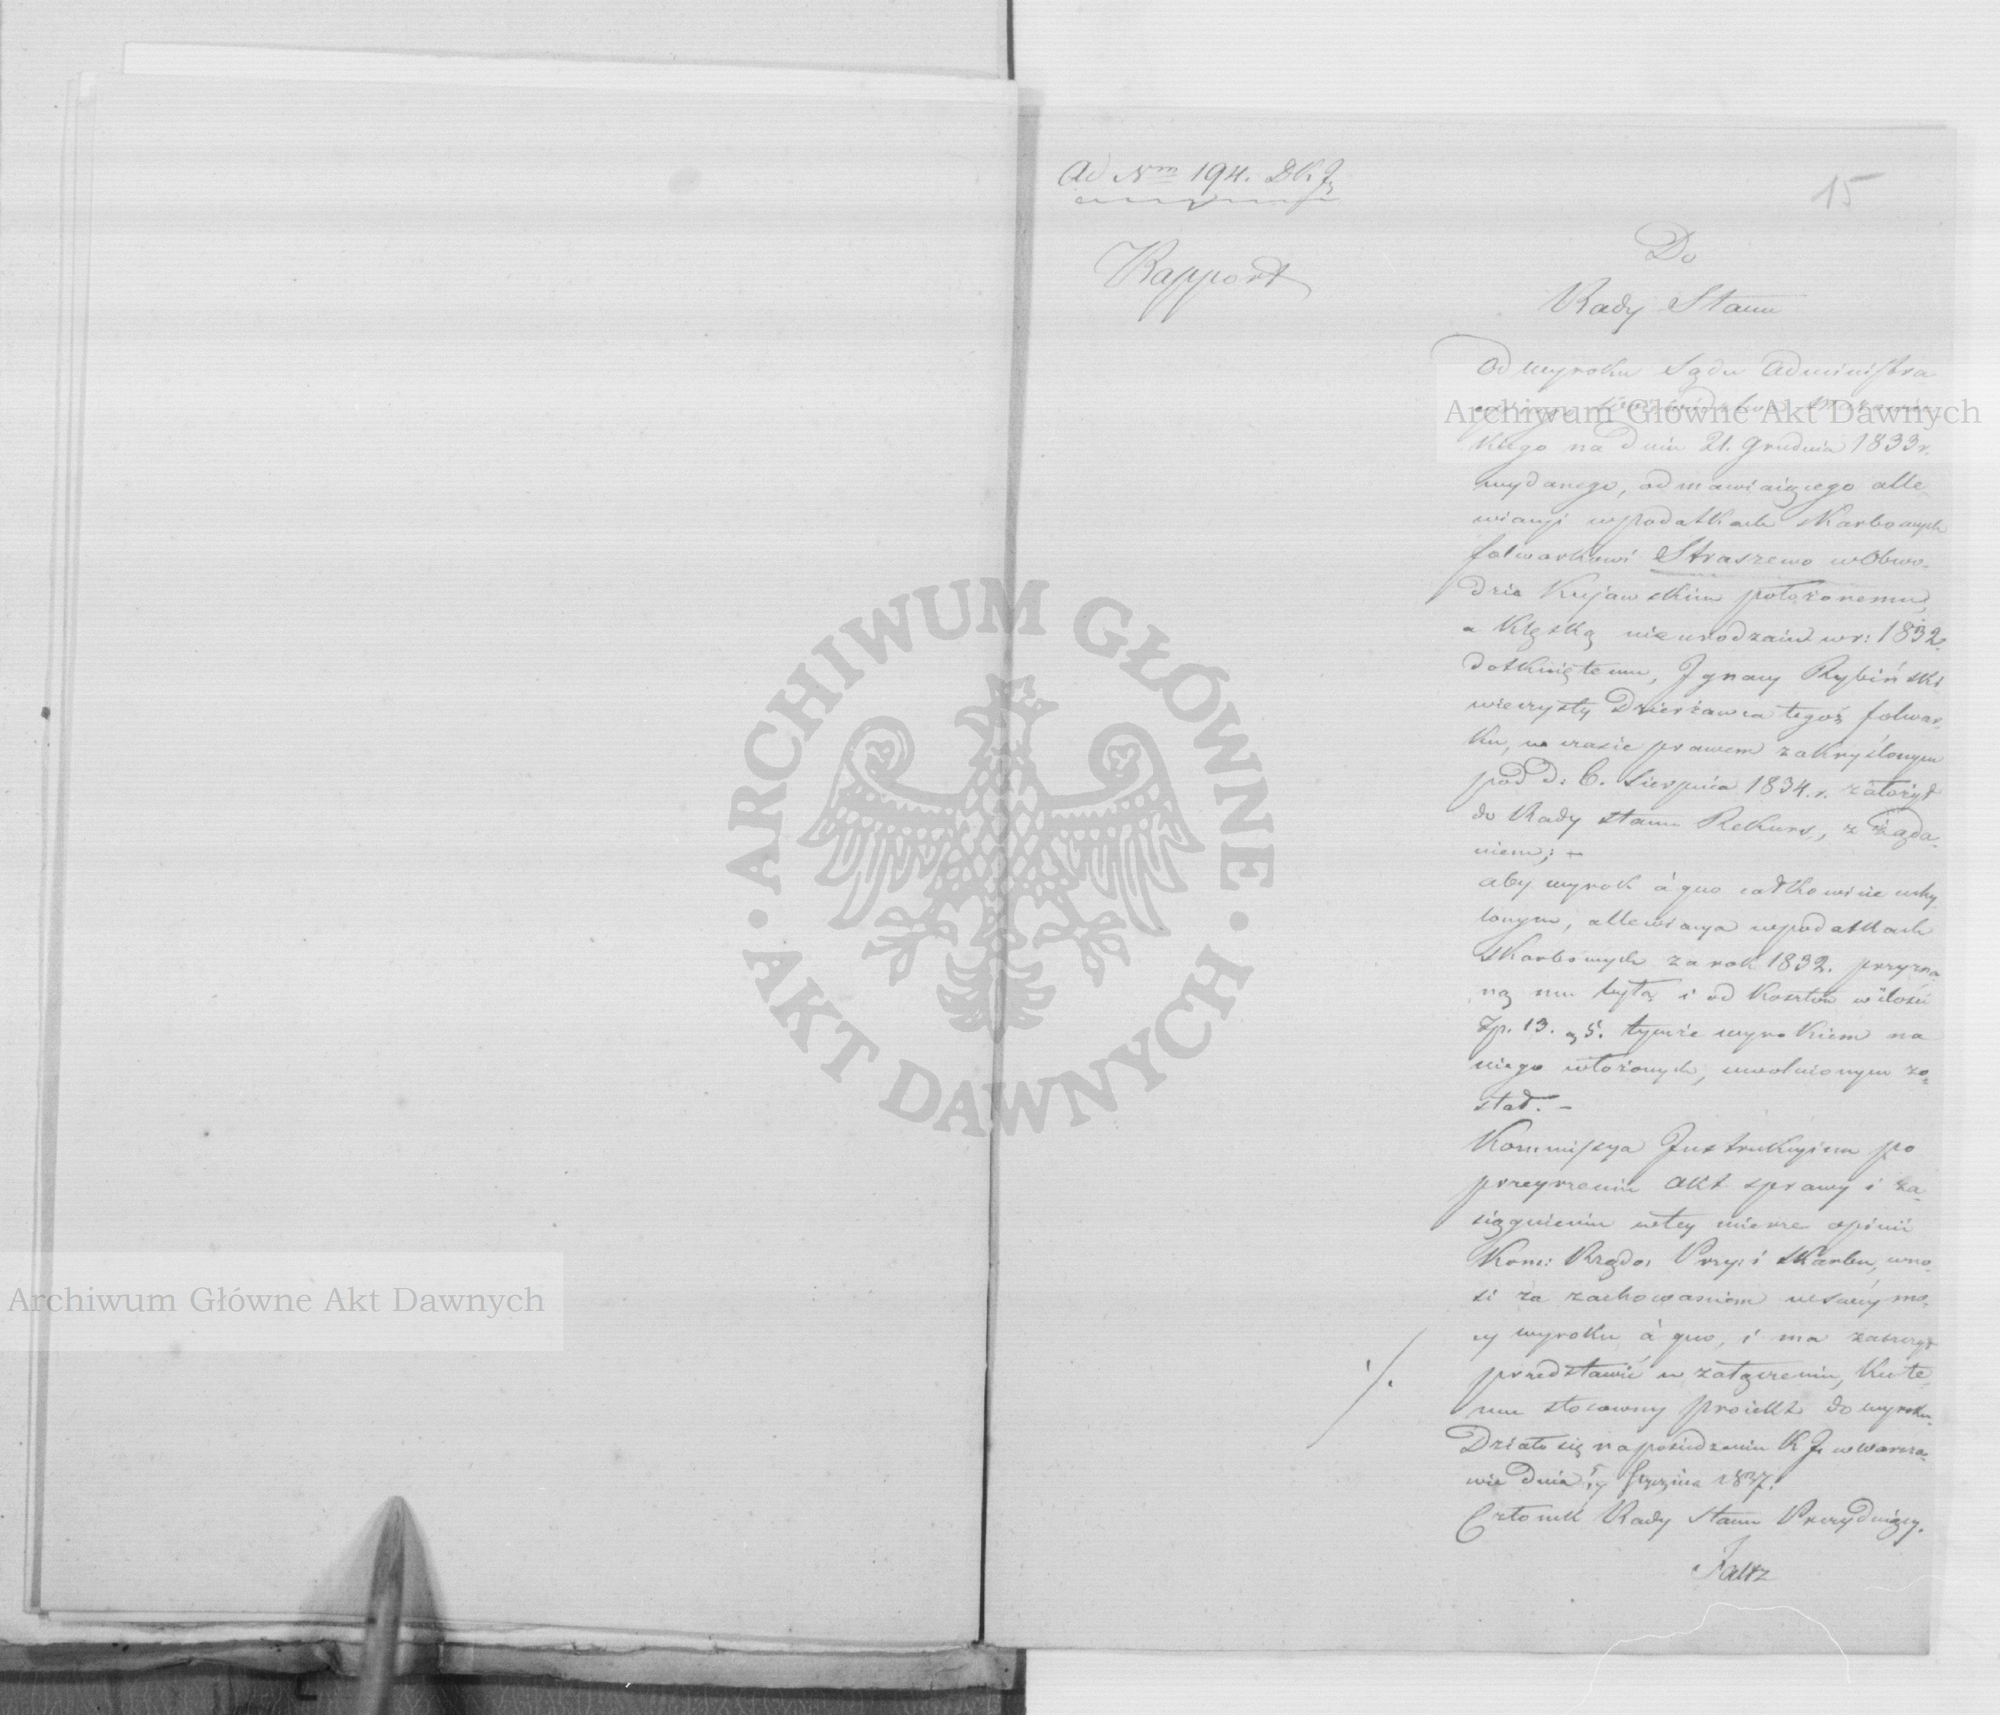 Ad Nrm 194. D.K.J.
15
Rapport
Do
Rady Stanu
Od wyroku Sądu Administra
Archiwum Główne Akt Dawnych
kiego na dniu 21. Grudnia 1833 r.
wydanego, odmawiaiącego alle
wiacyi w podatkach skarbowych
folwarkowi Straszewo w Obwo-
dzie Kujawskim położonemu,
a klęską nieurodzaiu w r: 1832.
dotkniętemu, Ignacy Rybiński
wieczysty Dzierżawca tegoż folwar-
ku, w czasie prawem zakryślonym
pod d: 6. Sierpnia 1834. r. założył
do Rady Stanu Rekurs, z żąda-
niem; -
aby wyrok á quo całkowicie uchy
lonym, allewiacya w podatkach
Skarbowych za rok 1832. przyzna
ną mu była, i od kosztów w ilości
Zp. 13. g 5. tymże wyrokiem na
niego włożonych, uwolnionym zo-
stał. -
Kommissya Instrukcyina po
przeyrzeniu Akt sprawy i za-
siągnieniu w tey mierze opinii
Kom: Rządo: Przy: i Skarbu, wno-
si za zachowaniem w swey mo-
cy wyroku á quo, i ma zaszczyt
przedstawić w załączeniu, ku te
mu stosowny proiekt do wyroku.
Działo się na posiedzeniu K. J. w Warsza-
wie dnia Stycznia 1837.
Członek Rady Stanu Prezyduiący.
Faltz
ARCHIWUM GŁÓWNE
AKT DAWNYCH
Archiwum Główne Akt Dawnych